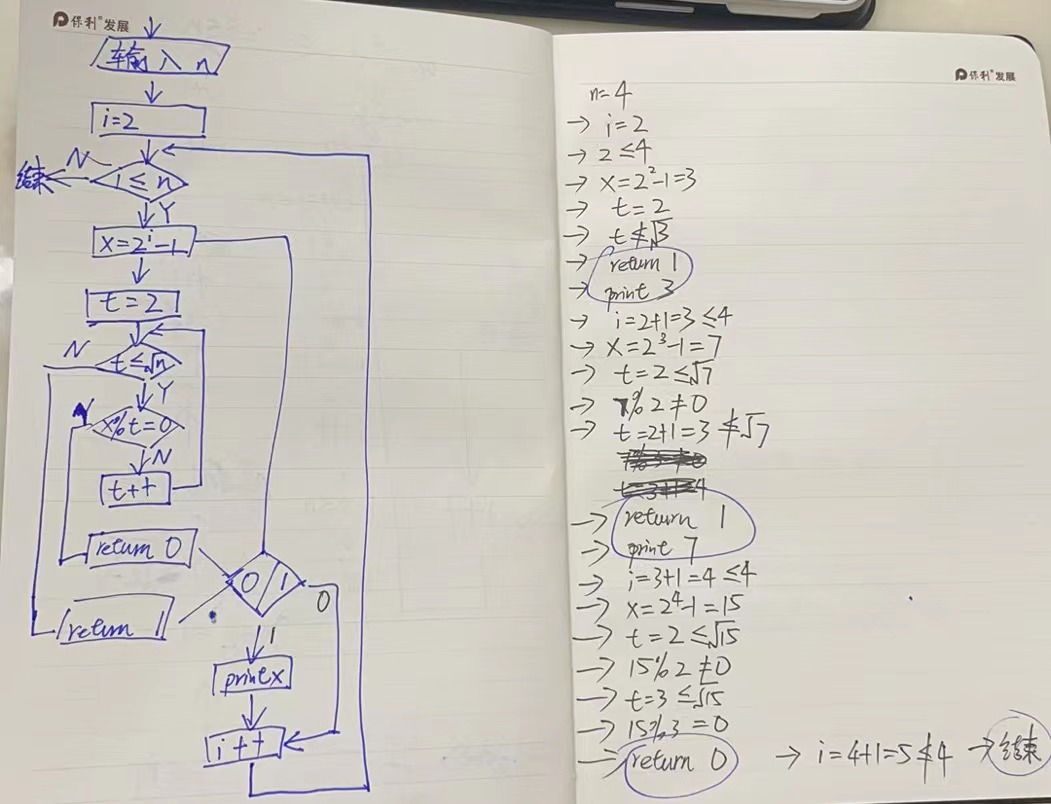 保利®发展
输入 n
i=2
N
i≤n
结束
Y
x=2^i-1
t=2
N
t≤√n
Y
Y
x%t=0
N
t++
return 0
0/1
0
return 1
1
print x
i++
保利®发展
n=4
→ i=2
→ 2≤4
→ x=2²-1=3
→ t=2
→ t≰√3
→ return 1
→ print 3
→ i=2+1=3≤4
→ x=2³-1=7
→ t=2≤√7
→ 7%2≠0
→ t=2+1=3≰√7
→ return 1
→ print 7
→ i=3+1=4≤4
→ x=2⁴-1=15
→ t=2≤√15
→ 15%2≠0
→ t=3≤√15
→ 15%3=0
→ return 0 → i=4+1=5≰4 → 结束